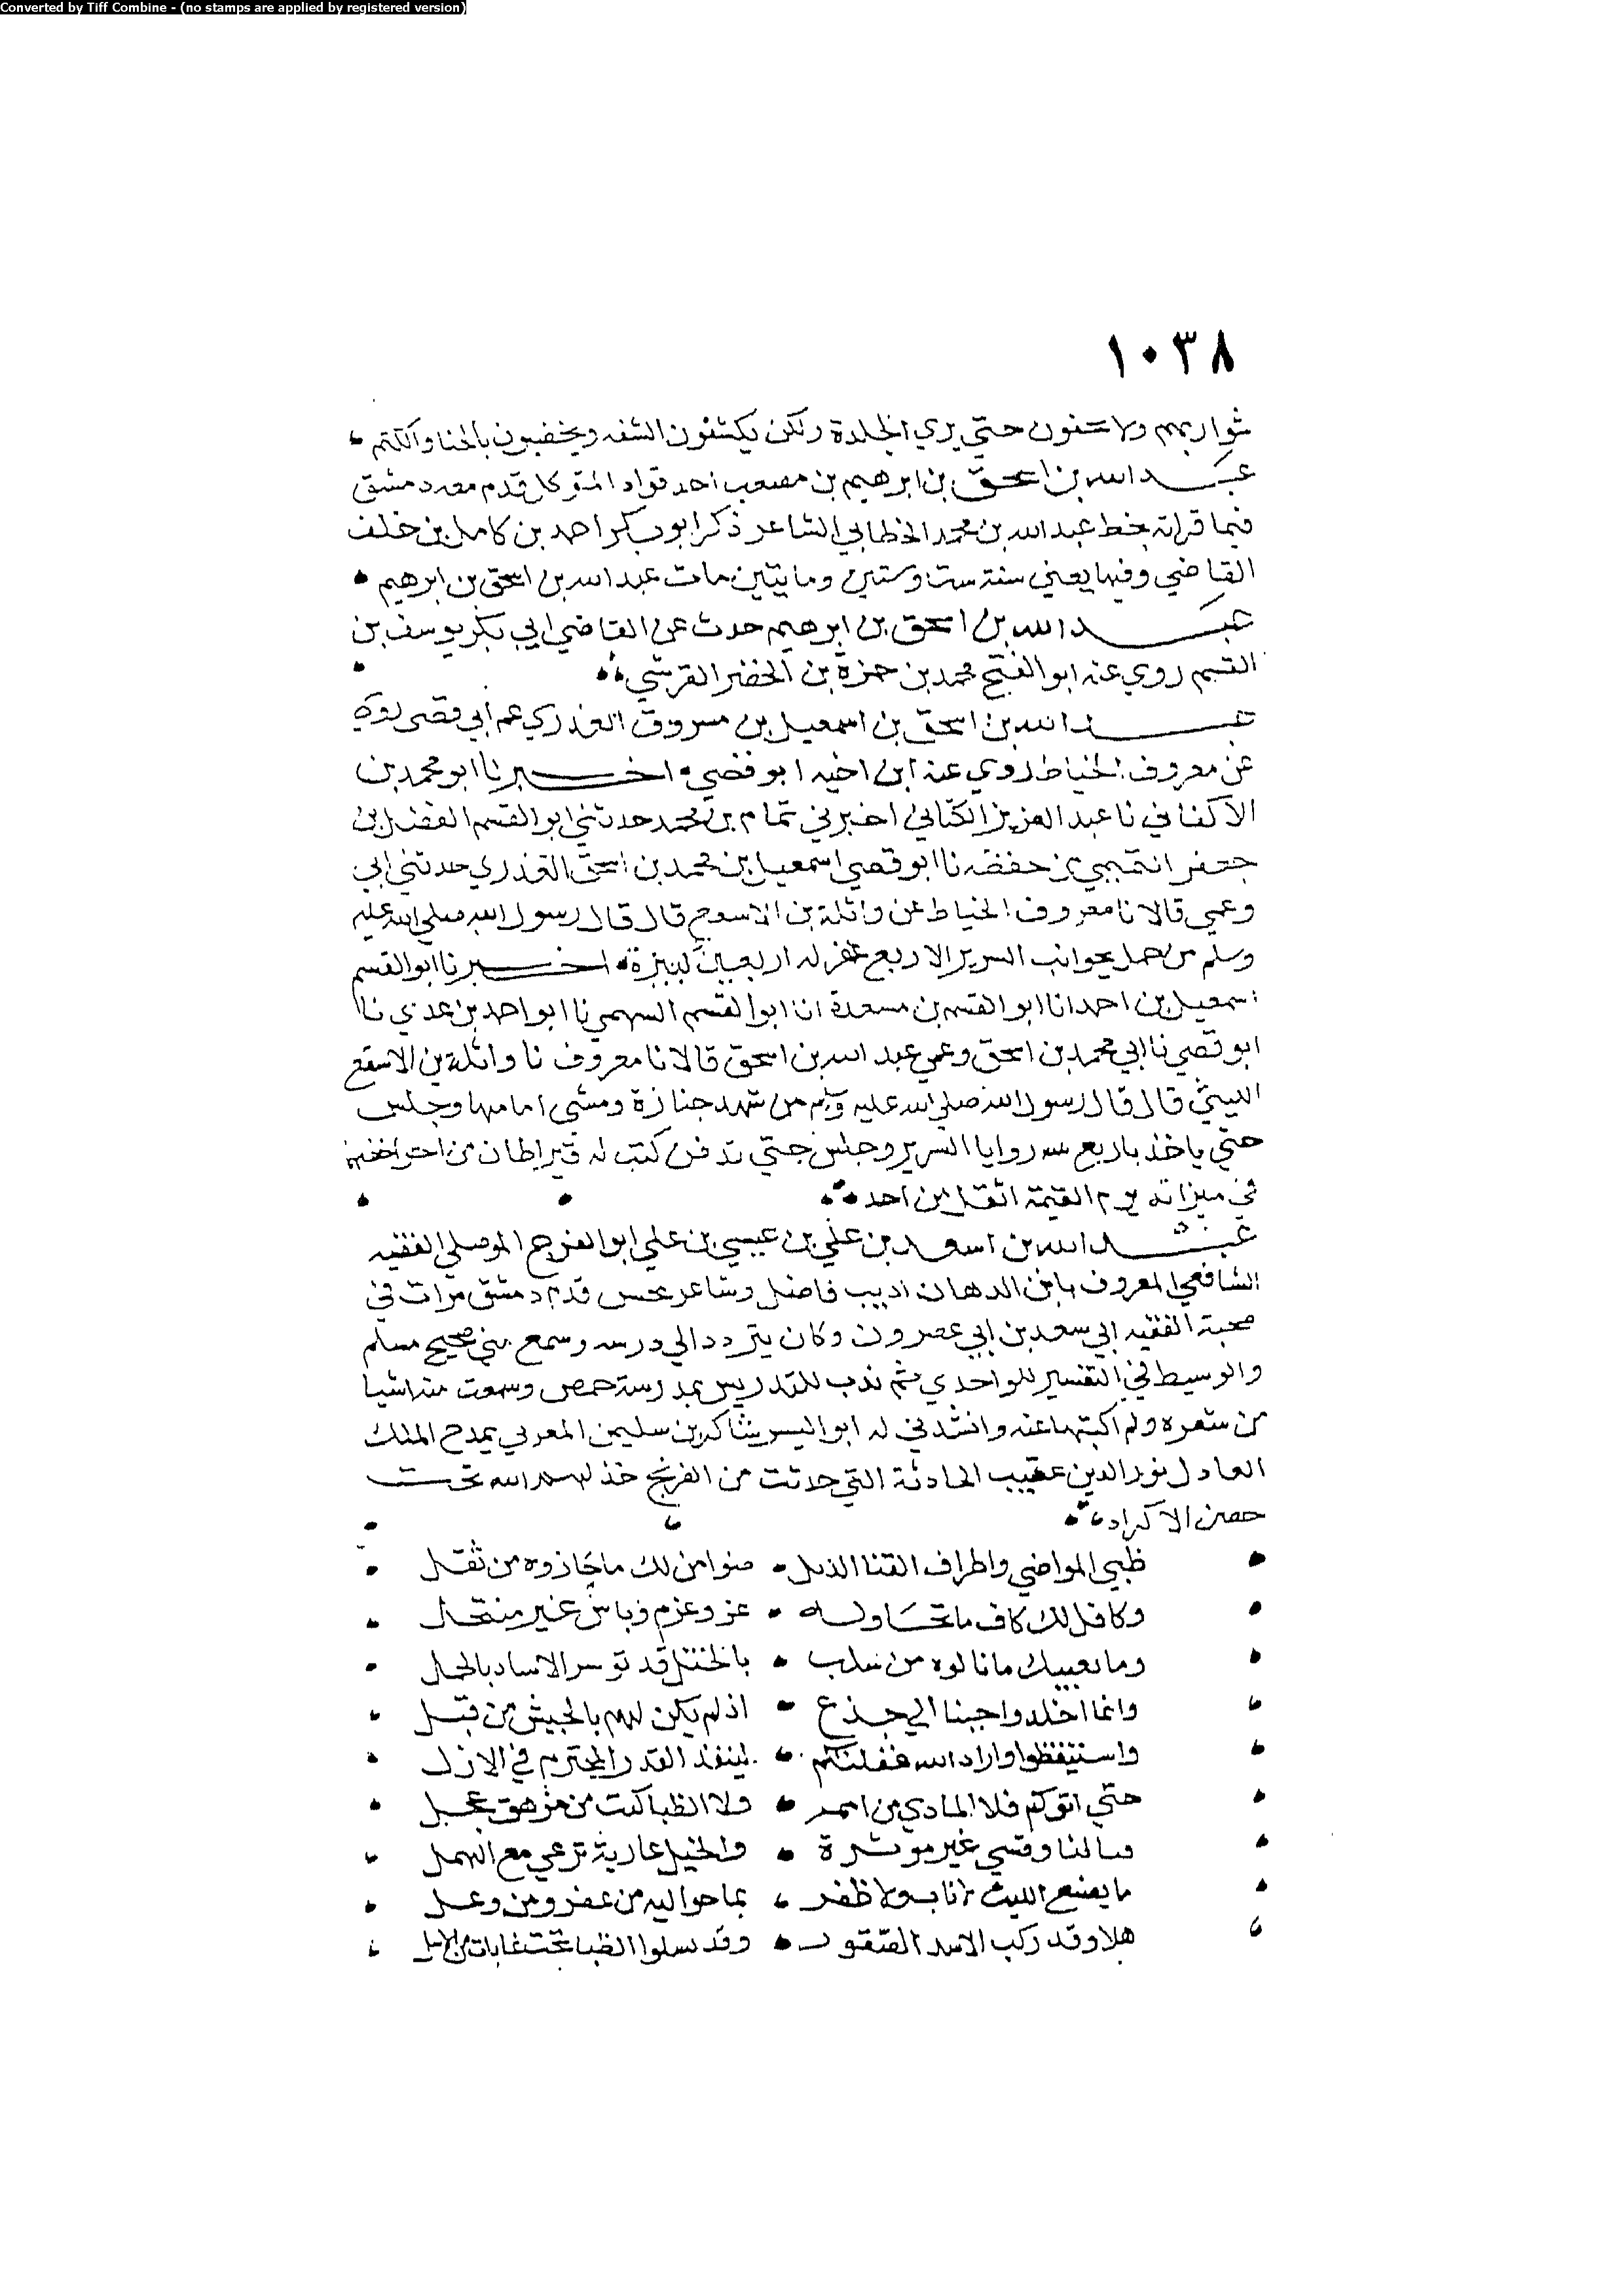 Converted by Tiff Combine - (no stamps are applied by registered version)
١٠٣٨
شواربهم ولا يحفون حتي يري الجلدة ولكن يكشفون الشفه ويخضبون بالحنا والكتم
عبد الله بن اسحق بن ابرهيم بن مصعب احد قواد المتوكل قدم معه دمشق
فيما قراته بخط عبد الله بن محمد الخطابي الشاعر ذكر ابو بكر احمد بن كامل بن خلف
القاضي وفيها يعني سنة ست وستين ومايتين مات عبد الله بن اسحق بن ابرهيم
عبد الله بن اسحق بن ابرهيم حدث عن القاضي ابي بكر يوسف بن
القسم روي عنه ابو الفتح محمد بن حمزة بن الخضر القرشي
عبد الله بن اسحق بن اسمعيل بن مسروق العذري عم ابي قصي روي
عن معروف الخياط روي عنه ابن اخيه ابو قصي اخبرنا ابو محمد بن
الاكفاني نا عبد العزيز الكتاني اخبرني تمام بن محمد حدثني ابو القسم الفضل بن
جعفر التميمي من حفظه نا ابو قصي اسمعيل بن محمد بن اسحق العذري حدثني ابي
وعمي قالا نا معروف الخياط عن واثلة بن الاسقع قال قال رسول الله صلي الله عليه
وسلم من حمل بجوانب السرير الاربع غفر له اربعين كبيرة اخبرنا ابو القسم
اسمعيل بن احمد انا ابو القسم بن مسعدة انا ابو القسم السهمي نا ابو احمد بن عدي نا
ابو قصي نا ابي محمد بن اسحق وعمي عبد الله بن اسحق قالا نا معروف نا واثلة بن الاسقع
الليثي قال قال رسول الله صلي الله عليه وسلم من شهد جنازة ومشي امامها وجلس
حتي ياخذ باربع زوايا السرير وجلس حتي تدفن كتب له قيراطان من اجر اخفهما
في ميزانه يوم القيمة اثقل من احد
عبد الله بن اسعد بن علي بن عيسي بن علي ابو الفرج الموصلي الفقيه
الشافعي المعروف بابن الدهان اديب فاضل وشاعر محسن قدم دمشق مرات في
صحبة الفقيه ابي سعد بن ابي عصرون وكان يتردد الي درسه وسمع مني صحيح مسلم
والوسيط في التفسير للواحدي ثم ندب للتدريس بمدرسة حمص وسمعت منه اشيا
من شعره ولم اكتبها عنه وانشدني له ابو اليسر شاكر بن سليمن المعري يمدح الملك
العادل نور الدين عقيب الحادثة التي حدثت من الفرنج خذلهم الله تحت
حصن الاكراد
ظبي المواضي واطراف القنا الذبل ضوامن لك ما حازوه من ثقل
وكافل لك كاف ما تحاوله عز وعزم وباس غير منتحل
وما يعيبك ما نالوه من سلب بالختل قد توسر الاساد بالحيل
وانما اخلدوا جبنا الي جذع اذ لم يكن لهم بالجيش من قبل
واستيقظوا واراد الله غفلتكم لينفذ القدر المحتوم في الازل
حتي اتوكم فلا الماذي من امم ولا الظبا كثب من مزهق عجل
قنا لقا وقسي غير موترة والخيل عارية ترعي مع الهمل
ما يصنع الليث لا ناب ولا ظفر بما حواليه من عفر ومن وعل
هلا وقد ركب الاسد الصقور وقد سلوا الظبا تحت غابات من الاسل